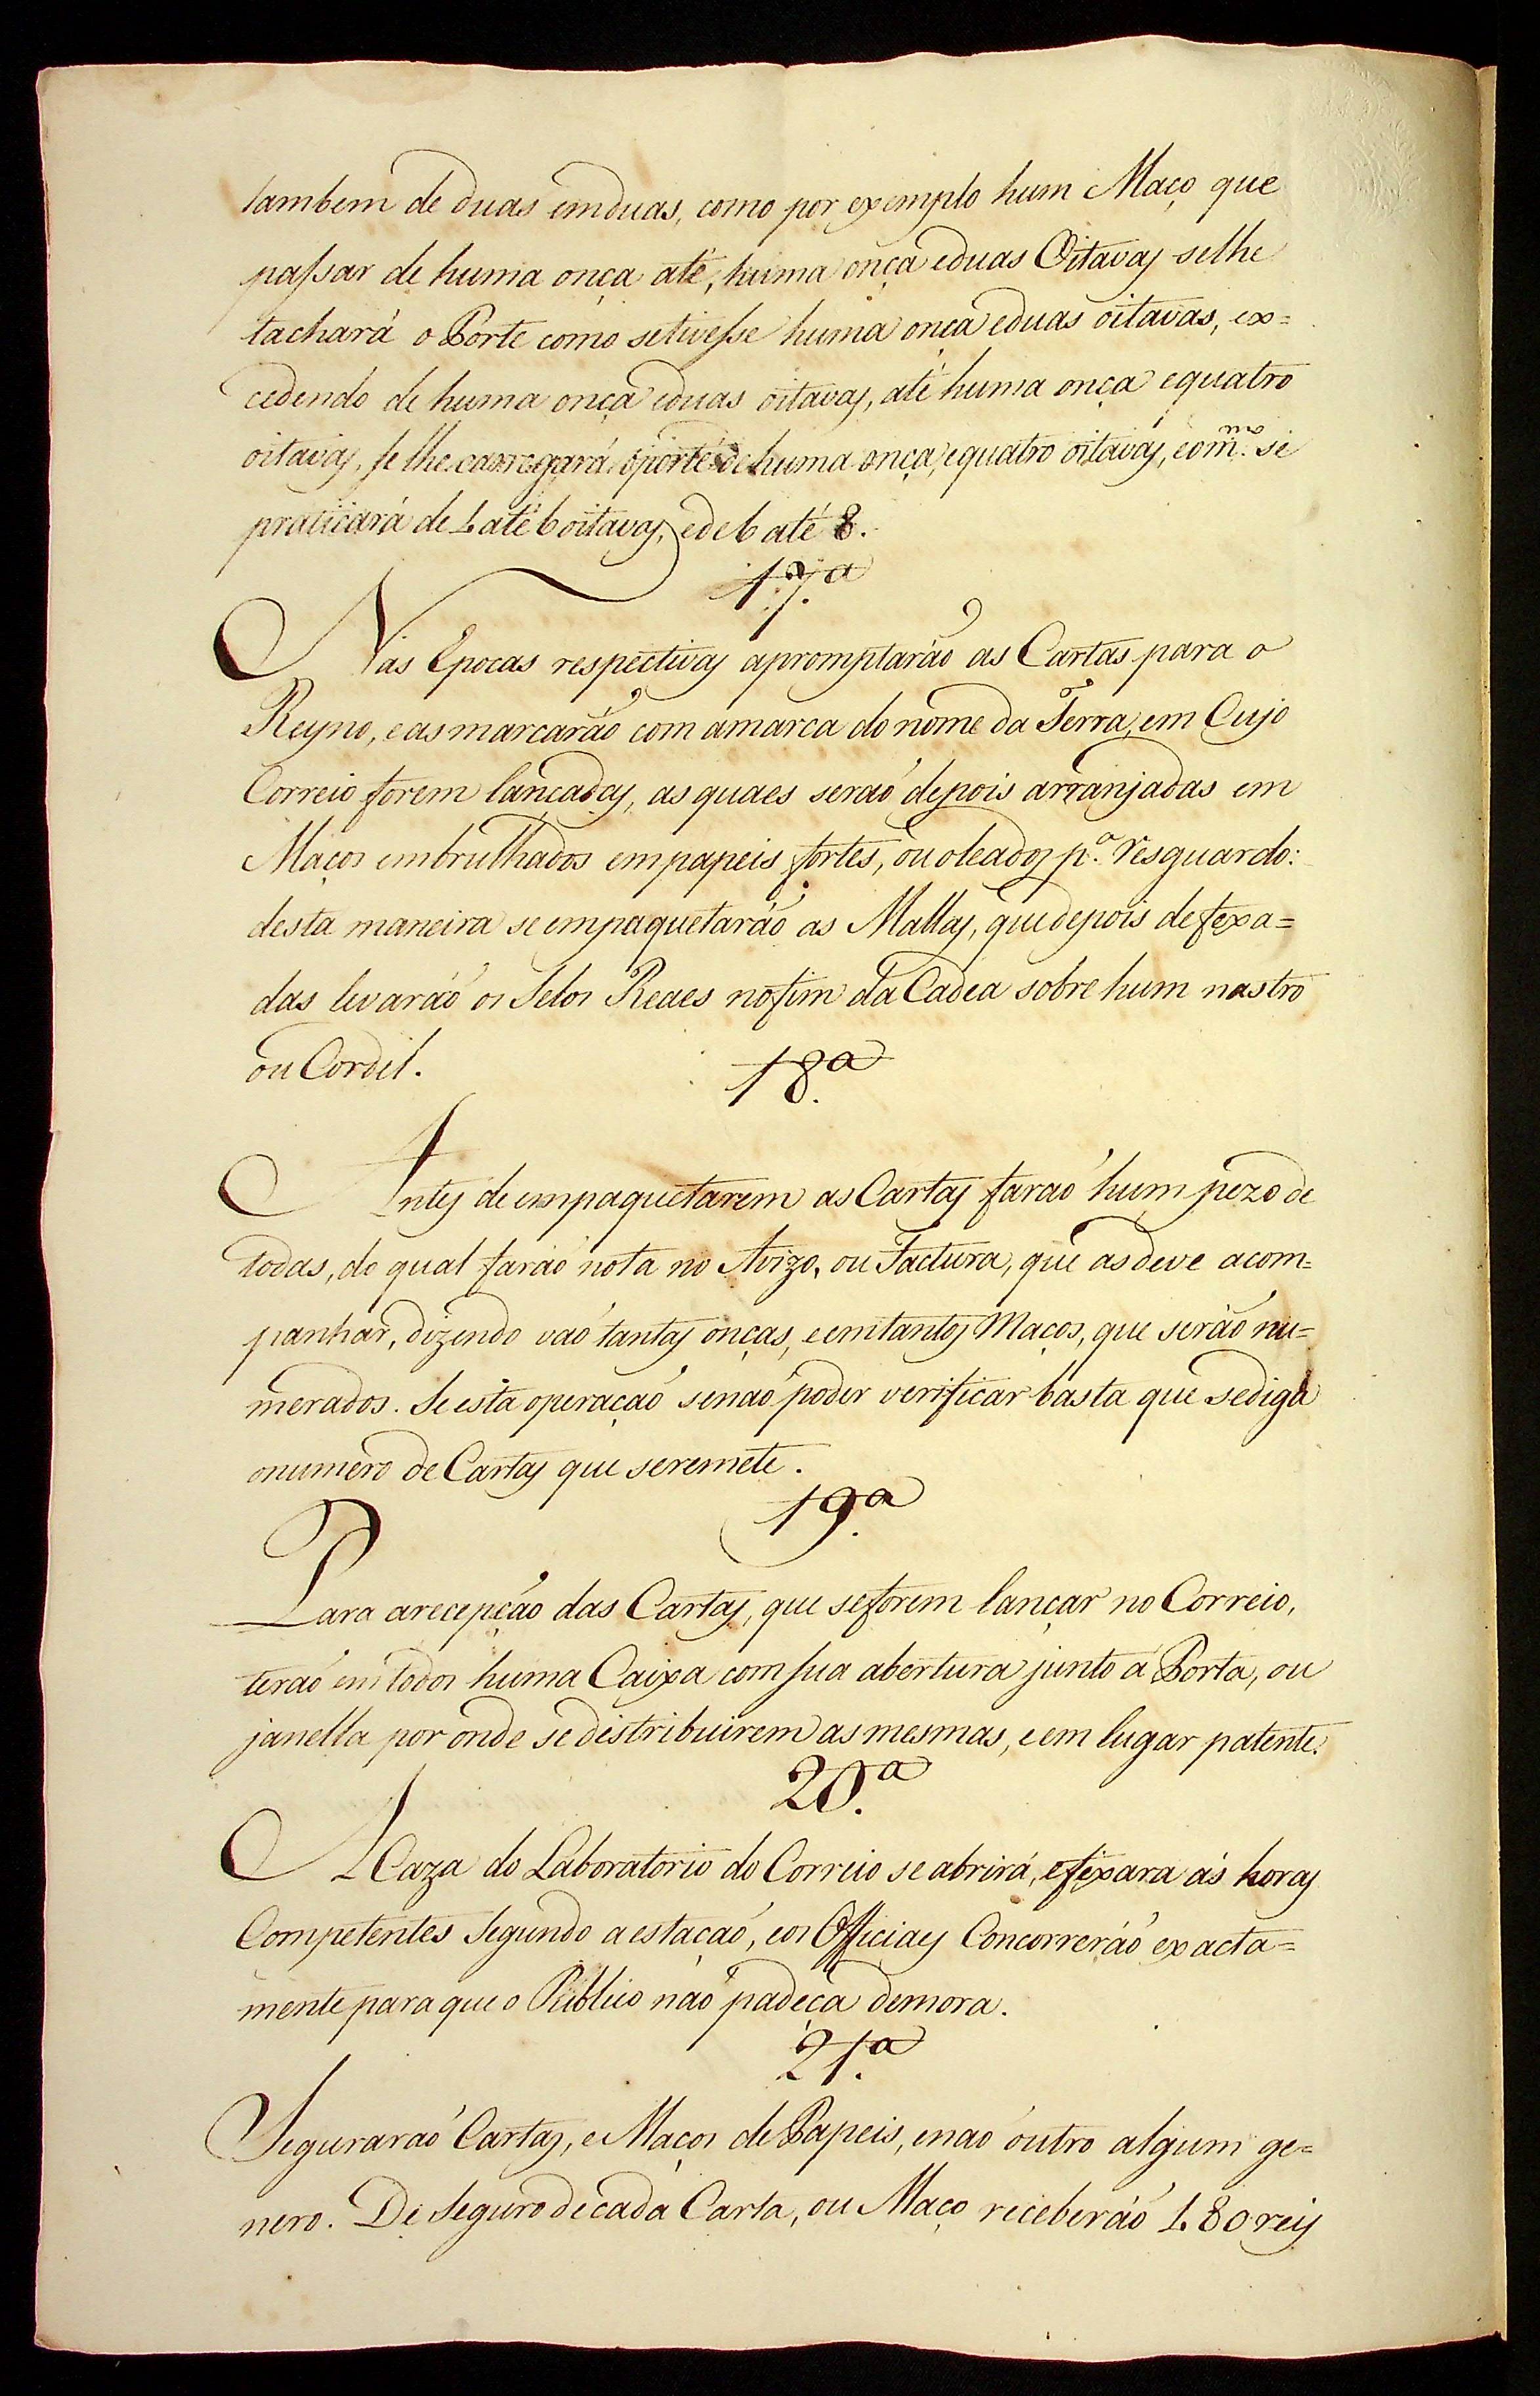 tambem de duas emduas, como por exemplo hum Maço que
passar de huma onça até, huma onça eduas Oitavas selhe
tachará o Porte como setivesse huma onça eduas oitavas, ex=
cedendo de huma onça eduas oitavas, até huma onça equatro
oitavas, se lhe carregará oporte de huma onça, equatro oitavas, eomm.º se
praticará de 4 até 6 oitavas, ede 6 até 8.
17.ª
Nas Epocas respectivas apromptarão as Cartas para o
Reyno, eas marcarão com amarca do nome da Terra, em Cujo
Correio forem lançadas, as quaes seraó depois arranjadas em
Maços embrulhados empapeis fortes, ou oleados p.ª resguardo:
desta maneira se empaquetarão as Mallas, quedepois defexa=
das levaráó os Selos Reaes nofim da Cadea sobre hum nastro
ou Cordil.
18.ª
Antes de empaquetarem as Cartas faraó hum pezo de
todas, do qual faráó nota no Avizo, ou Factura, que asdeve acom=
panhar, dizendo vaó tantas onças, eemtantos Maços, que serão nu=
merados. Se esta operaçaó senaó poder verificar basta que sediga
onumero de Cartas que seremete.
19.ª
Para arecepção das Cartas, que seforem lançar no Correio,
teraó em todos huma Caixa com sua abertura junto á Porta, ou
janella por onde se distribuirem as mesmas, eem lugar patente.
20.ª
A Caza do Laboratorio do Correio se abrirá, efexara ás horas
Competentes Segundo a estaçaó, eos Officiaes Concorreráó exacta=
mente para que o Publico naó padeça demora.
21.ª
Seguraraó Cartas, e Maços de Papeis, enaó outro algum ge=
nero. De Seguro decada Carta, ou Maço receberáó 480 reis